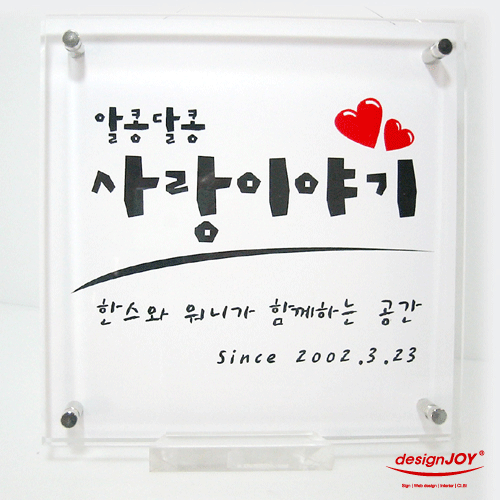 알콩달콩
사랑이야기
한스와 워니가 함께하는 공간
Since 2002.3.23
designJOY®
Sign | Web design | Interior | CI.BI